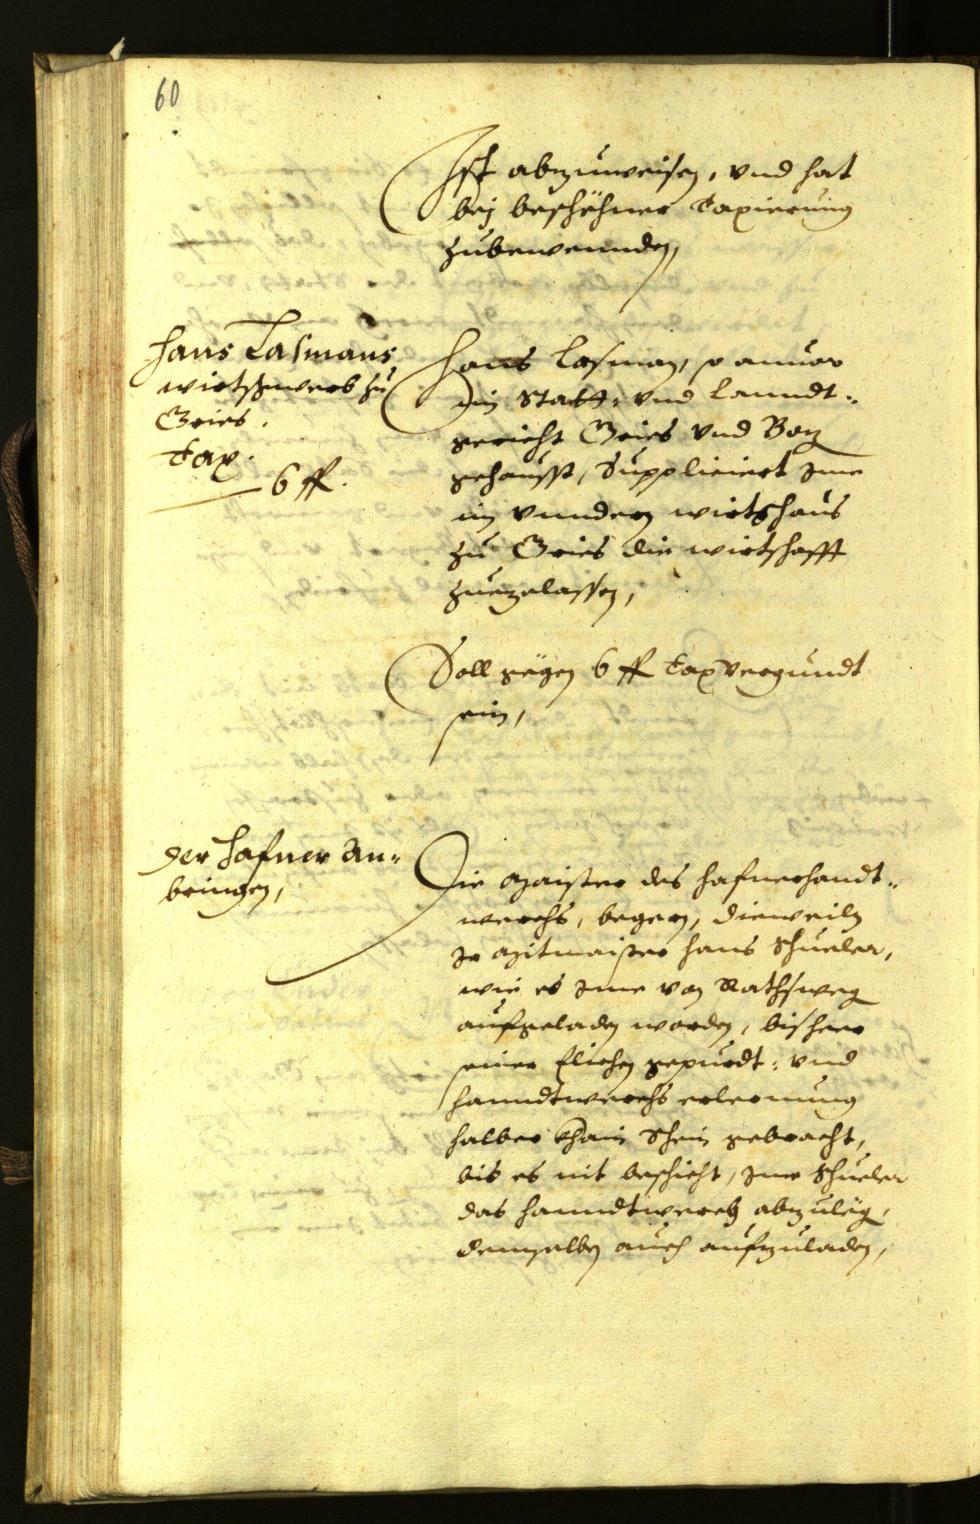 60
Ist abzuweisen, vnd hat
bej beschehner Taxierung
zubewennden,
Hans Lasmans
wirtsgwerb zu
Gries.
Tax.
6 ff.
Hans Lasman, so anuor
im Statt- vnd Lanndt-
gericht Gries vnd Bozen
gehausst, Suppliciert Ime
im vnndern wirtshaus
zu Gries die wirtschafft
zuezelassen,
Soll gegen 6 ff Tax vergundt
sein,
Der Hafner An-
bringen,
Die Maister des Hafnerhandt-
werchs, begern, dieweiln
Ir Mitmaister Hans Schueler,
wie es Ime von Rathsweg
aufgeladen worden, bisheer
seiner Elichen gepurdt- vnd
hanndtwerchs erlernung
halber khain Schein gebracht,
bis es nit beschicht, Ime Schueler
das hanndtwerch abzuleg,
demselben auch aufzuladen,